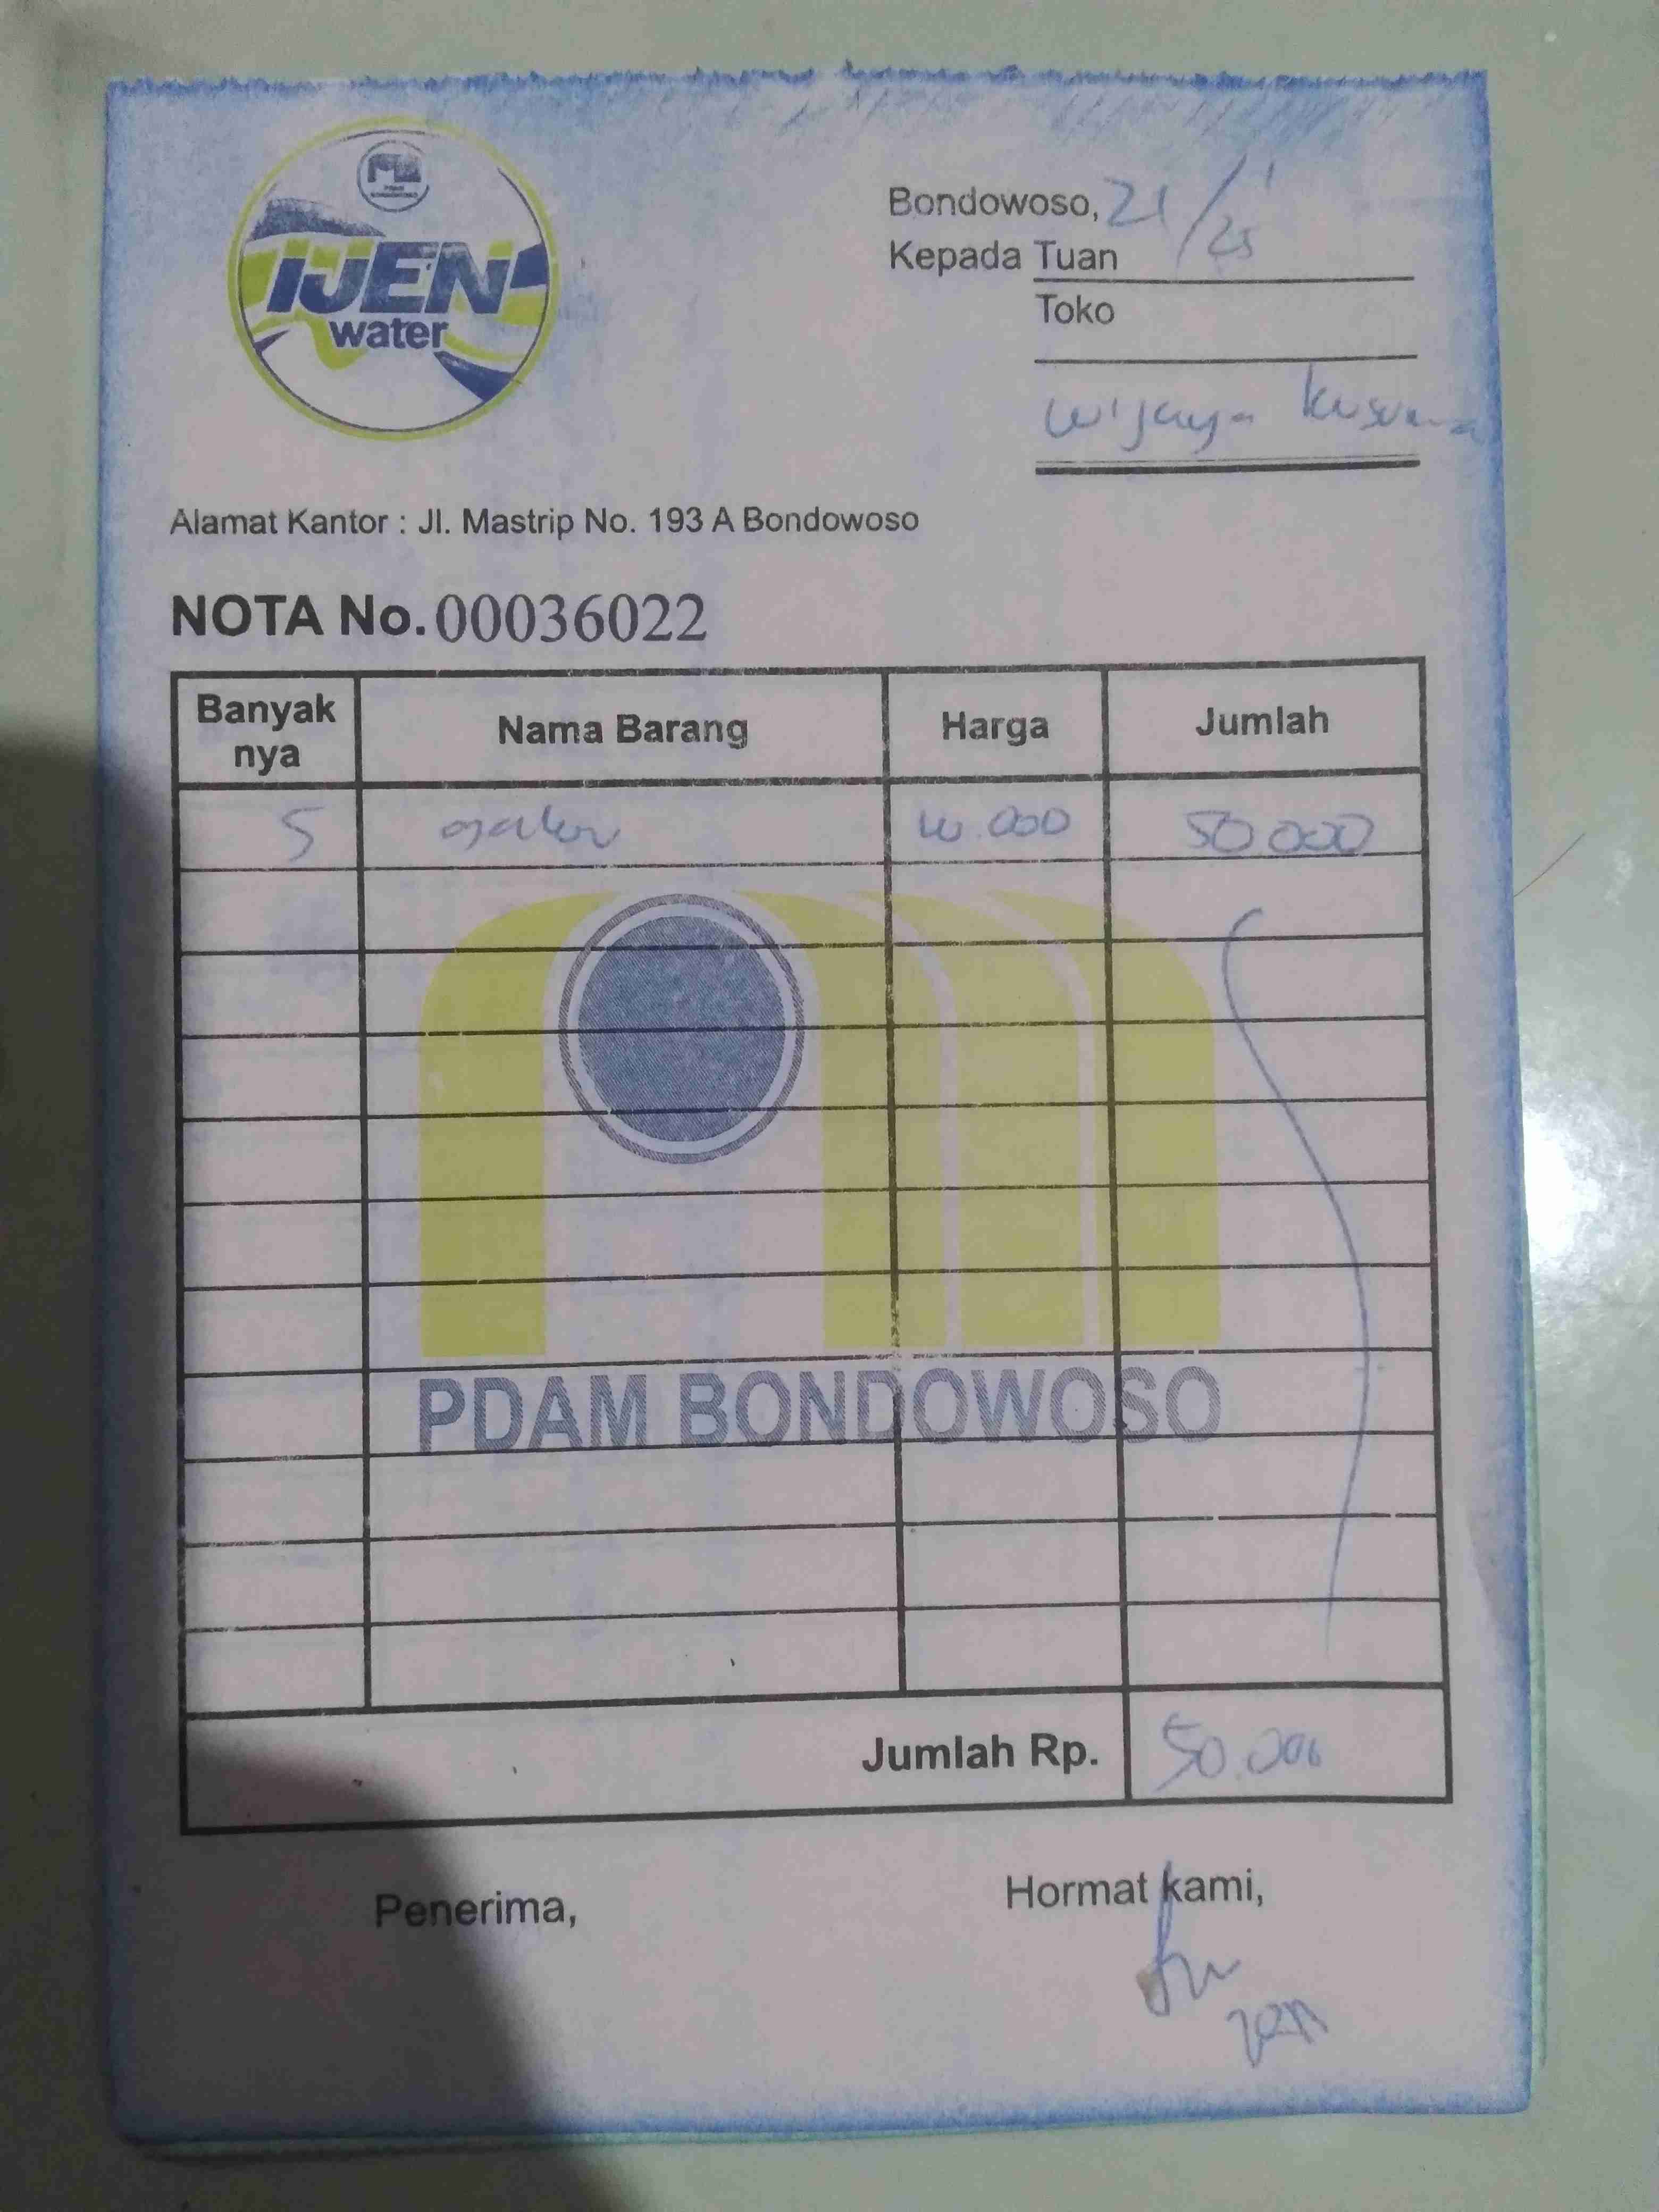 IJEN
water
Bondowoso, 21/1
25
Kepada Tuan
Toko
wijaya kusuma
Alamat Kantor : Jl. Mastrip No. 193 A Bondowoso
NOTA No. 00036022
Banyak nya Nama Barang Harga Jumlah
5 galon 10.000 50.000
PDAM BONDOWOSO
Jumlah Rp. 50.000
Penerima, Hormat kami,